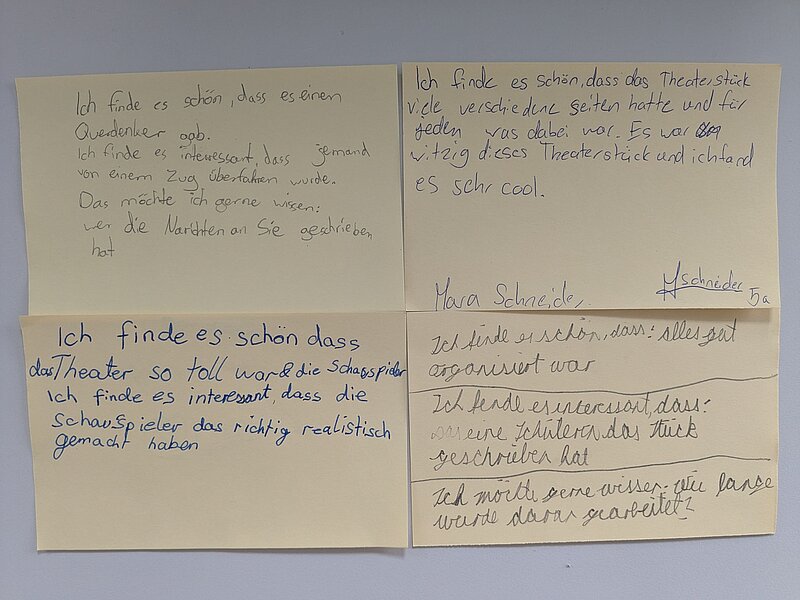 Ich finde es schön, dass es einen
Querdenker gab.
Ich finde es interessant, dass jemand
von einem Zug überfahren wurde.
Das möchte ich gerne wissen:
wer die Narichten an Sie geschrieben
hat
Ich finde es schön, dass das Theaterstück
viele verschiedene seiten hatte und für
jeden was dabei war. Es war
witzig dieses Theaterstück und ich fand
es sehr cool.
Mara Schneider
Schneider
5a
Ich finde es schön dass
das Theater so toll war & die Schauspieler
Ich finde es interessant, dass die
Schauspieler das richtig realistisch
gemacht haben
Ich finde es schön, dass: alles gut
organisiert war
Ich finde es interessant, dass:
eine Schülerin das Stück
geschrieben hat
Ich möchte gerne wissen: wie lange
wurde daran gearbeitet?